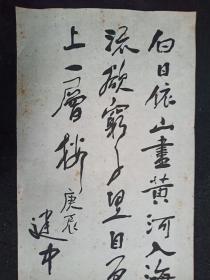 白日依山盡黄河入海
流欲窮千里目更
上一層楼
庚辰
建中